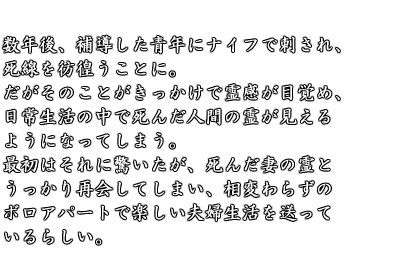 数年後、補導した青年にナイフで刺され、
死線を彷徨うことに。
だがそのことがきっかけで霊感が目覚め、
日常生活の中で死んだ人間の霊が見える
ようになってしまう。
最初はそれに驚いたが、死んだ妻の霊と
うっかり再会してしまい、相変わらずの
ボロアパートで楽しい夫婦生活を送って
いるらしい。